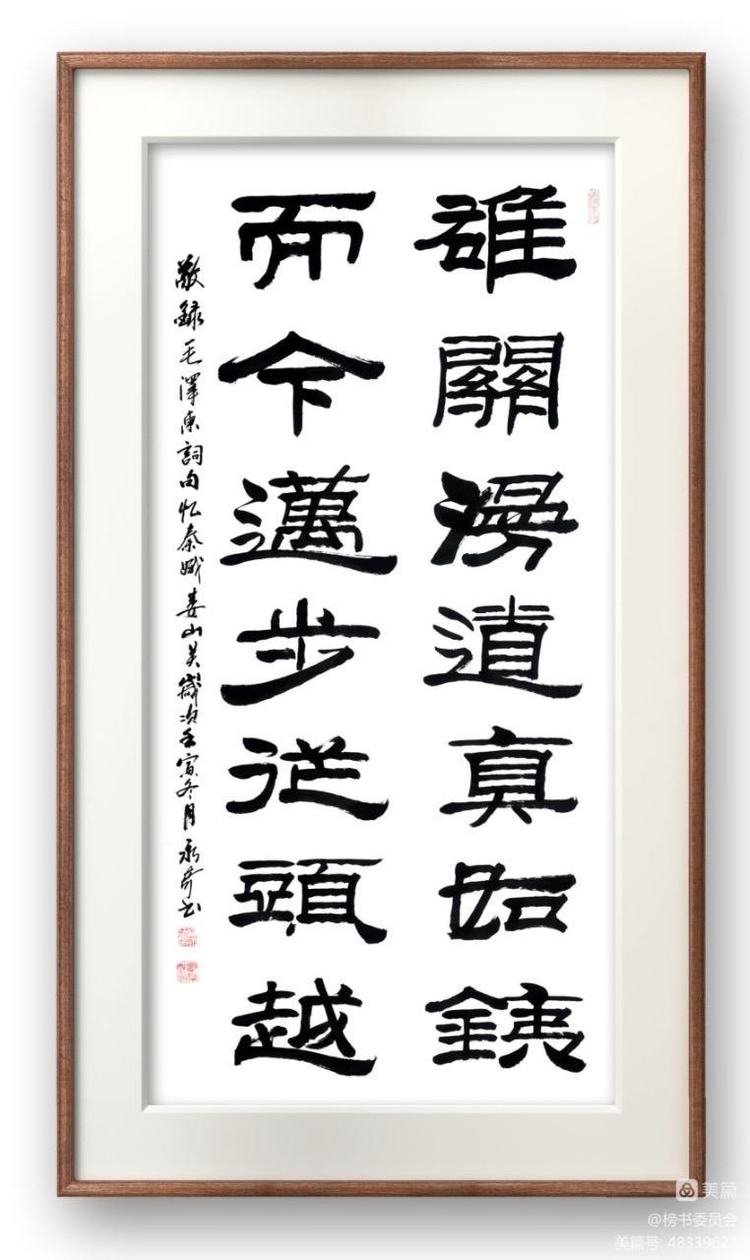 雄關漫道真如銕
而今邁步從頭越
敬録毛澤東詞句忆秦娥娄山关歲次壬寅冬月 书
美篇
@榜书委员会
美篇号: 48339623